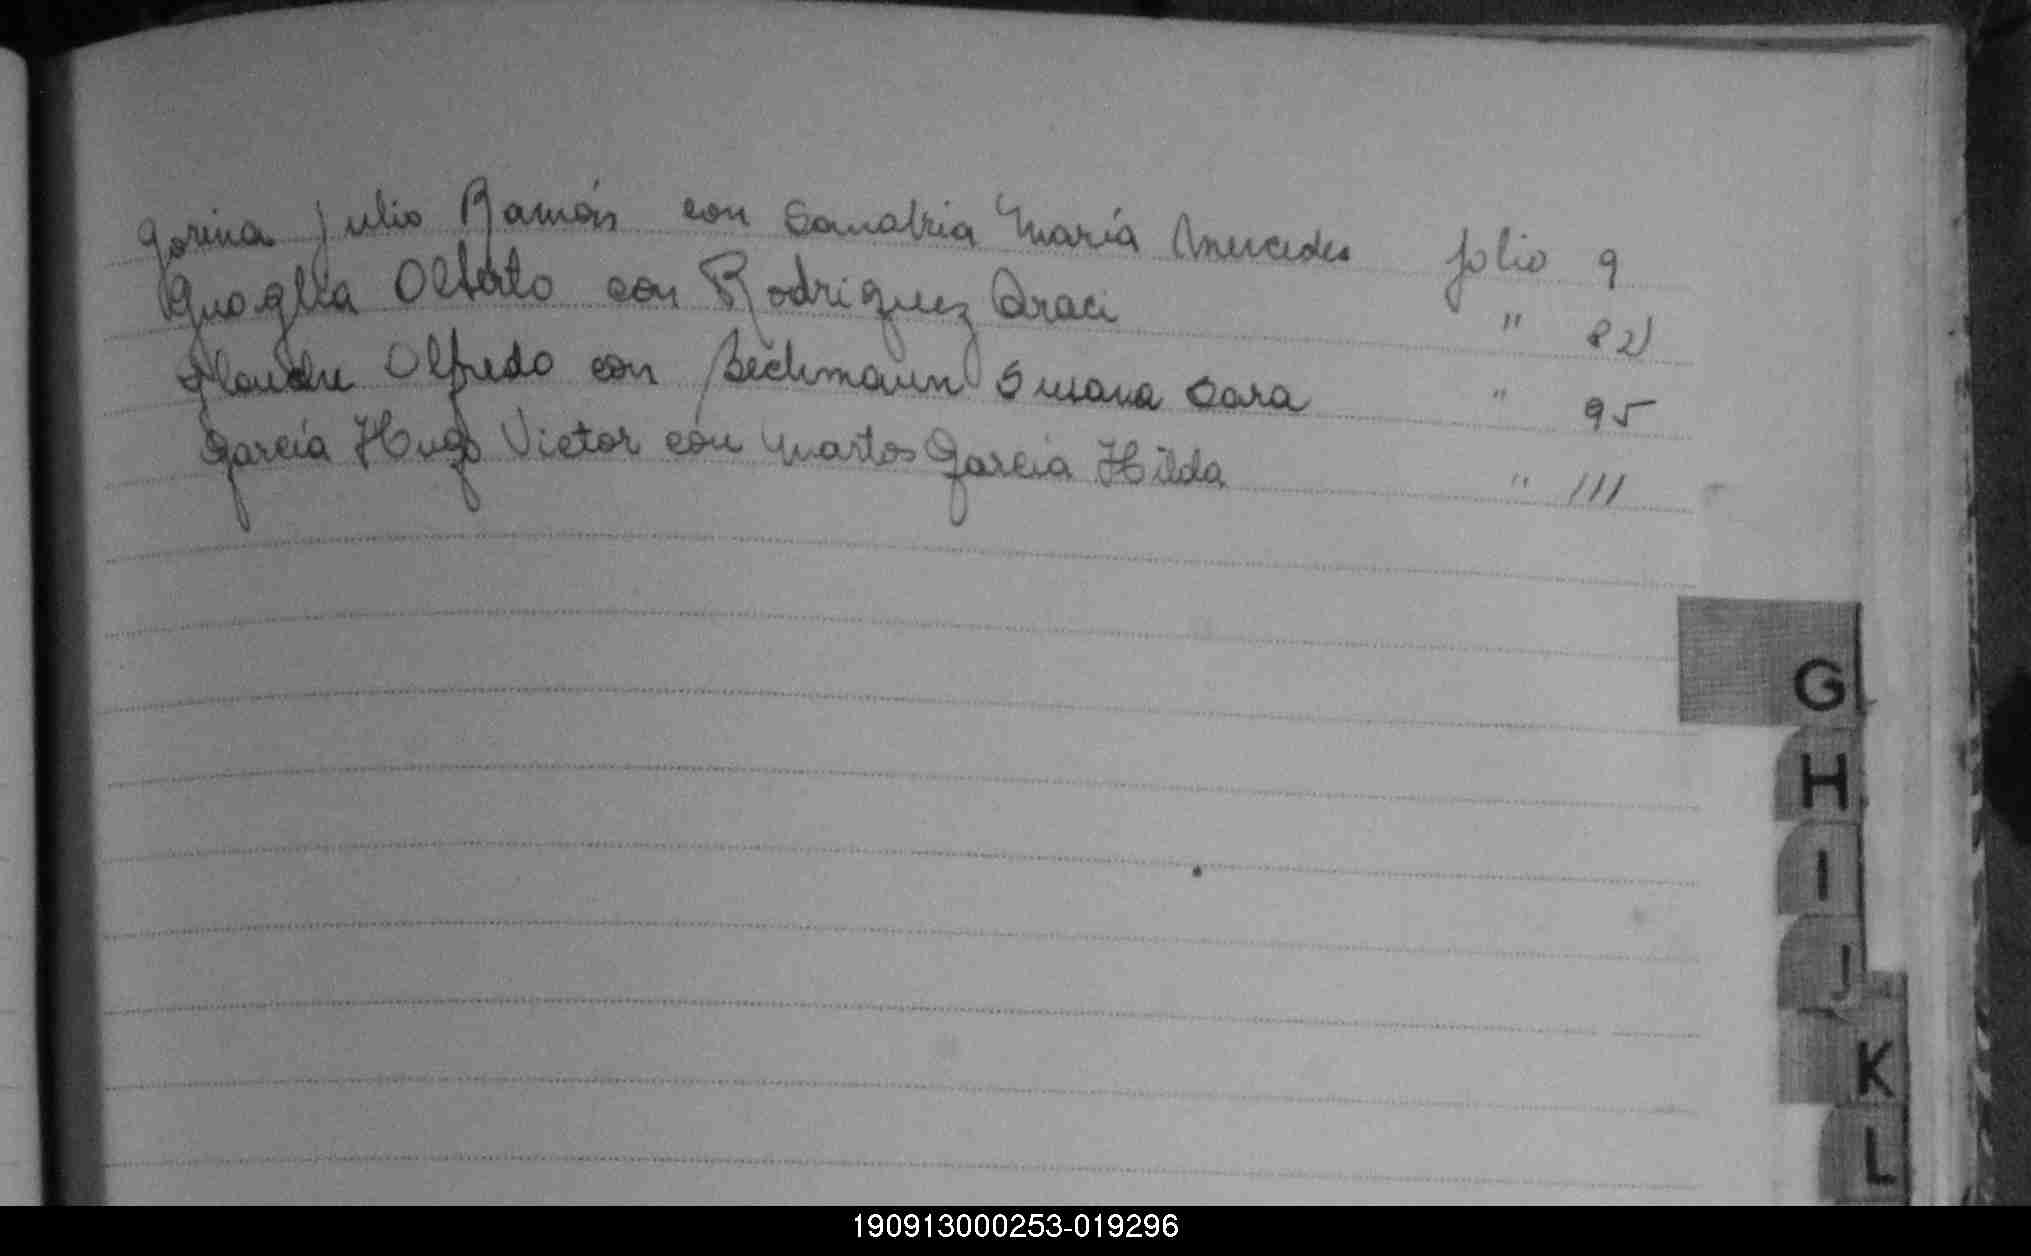 Gorina Julio Ramón con Sanabria María Mercedes folio 9
Guaglia Alberto con Rodriguez Araci " 82
Alfredo con Bechmann Susana Sara " 95
García Hugo Victor con Martos García Hilda " 111
G
H
I
J
K
L
190913000253-019296